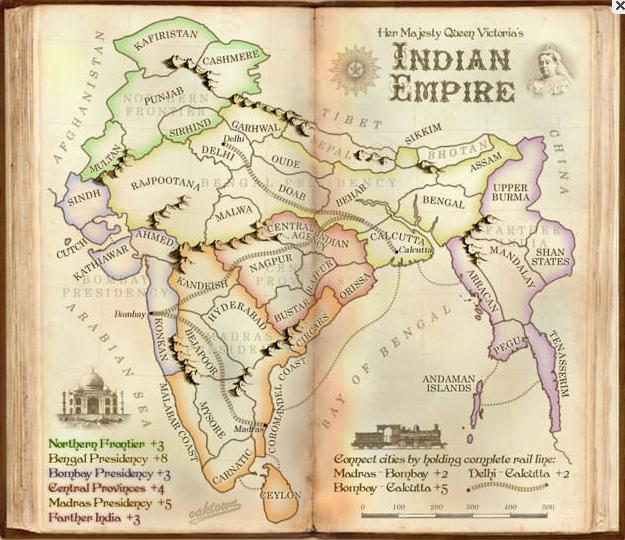 Her Majesty Queen Victoria's
INDIAN
EMPIRE
AFGHANISTAN
KAFIRISTAN
CASHMERE
NORTHERN
FRONTIER
PUNJAB
SIRHIND
MULTAN
TIBET
CHINA
GARHWAL
NEPAL
SIKKIM
BHOTAN
ASSAM
Delhi
DELHI
OUDE
RAJPOOTANA
BENGAL PRESIDENCY
DOAB
BEHAR
BENGAL
UPPER
BURMA
SINDH
MALWA
CUTCH
KATHIAWAR
AHMED.
CENTRAL INDIAN
AGENCY
CALCUTTA
Calcutta
FARTHER
INDIA
MANDALAY
SHAN
STATES
BOMBAY
PRESIDENCY
KANDEISH
NAGPUR
ORISSA
ARRACAN
Bombay
HYDERABAD
BUSTAR
CIRCARS
MADRAS
KONKAN
BEJAPOOR
PEGU
TENASSERIM
ARABIAN SEA
BAY OF BENGAL
COROMANDEL COAST
ANDAMAN
ISLANDS
MALABAR COAST
MYSORE
Madras
CARNATIC
CEYLON
oaktown
Northern Frontier +3
Bengal Presidency +8
Bombay Presidency +3
Central Provinces +4
Madras Presidency +5
Farther India +3
Connect cities by holding complete rail line:
Madras - Bombay +2 Delhi - Calcutta +2
Bombay - Calcutta +5
0 100 200 300 400 500